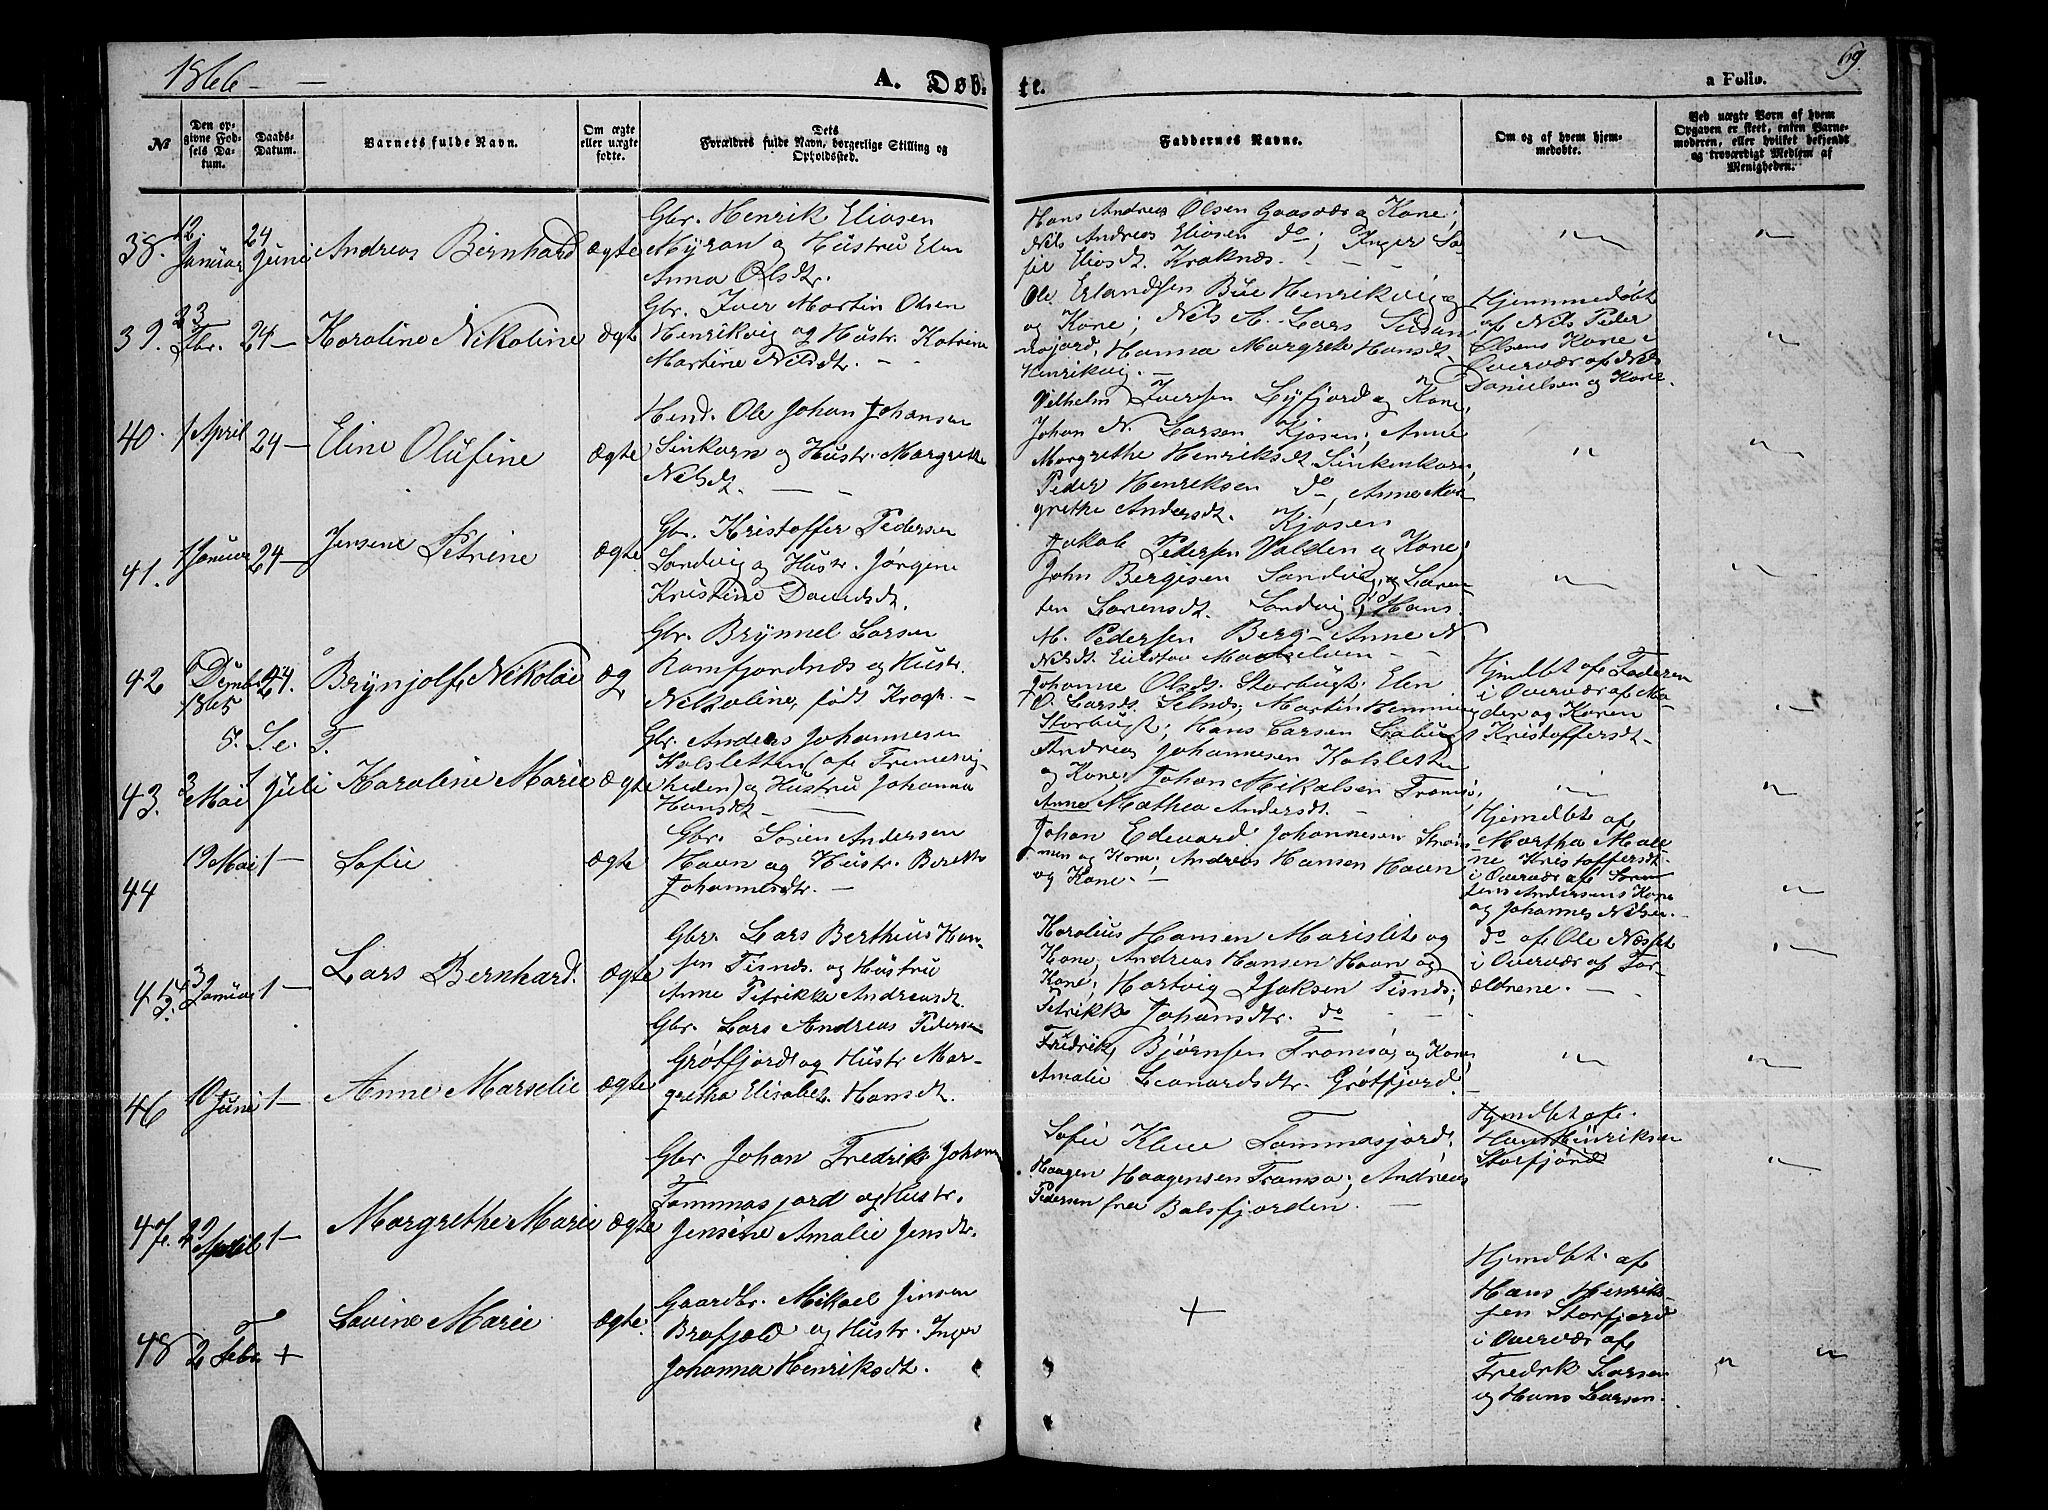 1866 —
A. Døb-
te.
a Folio.
69.
№
Den op-
givne Fød-
sels Da-
tum.
Daabs-
Datum.
Barnets fulde Navn.
Om ægte
eller uægte
fødte.
Dets
Forældres fulde Navn, borgerlige Stilling og
Opholdssted.
Faddernes Navne.
Om og af hvem hjem-
medøbte.
Ved uægte Børn af hvem
Opgaven er skeet, enten Barne-
moderen, eller hvilket bekjendt
og troværdigt Medlem af
Menigheden.
38.
12
Januar
24
Juni
Andreas Bernhard
ægte
Gbr. Henrik Eliasen
Myran og Hustru Elen
Anna Olsdtr.
Hans Andreas Olsen Gaasvær og Kone;
Nils Andreas Eliasen do; Inger So-
fie Eliasdt. Kraknæs. — —
"
"
39.
23
Fbr.
24 —
Karoline Nikoline
ægte
Gbr. Iver Martin Olsen
Henrikvig og Hustr. Katrine
Martine Nilsdtr. —
Ole Erlandsen Bue Henrikvig
og Kone; Nils A. Lars
Hanna Margrete Hansdt.
Henrikvig. —
Hjemmedøbt
af Nils Peder
Olsens Kone i
Overvær af Nils
Danielsen og Kone.
"
40.
1 April
24 —
Eline Olufine
ægte
Gbr. Ole Johan Johansen
Sinkarn og Hustr. Margrethe
Nilsdt. — —
Vilhelm Iversen Lyfjord og Kone,
Johan N. Larsen Kjosen; Anne
Margrethe Henriksdt Sinkenkarn,
Peder Henriksen do, Anne Mar-
grethe Andersdt. Kjosen
"
"
41.
1 Januar
24 —
Jensine Petrine
ægte
Gbr. Kristoffer Pedersen
Sandvig og Hustr. Jørgine
Kristine Davidsdt.
Jakob Pedersen Valden og Kone;
John Bergisen Sandvig, og Laren-
Larensdt. Sandvig; Hans
M. Pedersen Berg — Anne N.
Nilsdt. Malselven — —
"
"
42
6
Dcmbr.
1865
24.
Brynjolf Nikolai
æg
Gbr. Brynnel Larsen
Ramfjordnæs og Hustr.
Nikoline, født Krogh. —
Johanne Olsdt. Storbugt; Elen
O. Larsdt. Selnæs; Martin Hemming
Storbugt; Hans Larsen
Hjmdbt af Faderen
i Overvær af Mo-
der og Karen
Kristoffersdt —
"
5. S. e. T.
43.
3
Mai
1
Juli
Karoline Marie
ægte
Gbr. Anders Johannesen
Kalsletten (af Frimenig-
heden) og Hustru Johanna
Hansdt —
Andreas Johannesen Kalslett
og Kone; Johan Mikalsen Tromsø;
Anne Mathea Andersdt. —
"
"
44
19 Mai
1 —
Sofie
ægte
Gbr. Søren Andersen
Havn og Hustr. Berethe
Johannesdtr. —
Johan Edevard Johannesen Strøm-
men og Kone; Andreas Hansen Havn
og Kone. —
Hjemdbt af
Martha Male-
ne Kristoffersdt.
i Overvær af
Andersens Kone
og Johannes Nilsen. —
"
45.
3
Januar
1 —
Lars Bernhard.
ægte
Gbr. Lars Berthius Han-
sen Tisnæs. og Hustru
Anne Petrikke Andreasdt.
Karolius Hansen Marislet og
Kone; Andreas Hansen Havn og
Kone; Hartvig Isaksen Tisnæs;
Petrikke Johansdtr. do — —
do af Ole Næsset
i Overvær af For-
ældrene. — —
"
46
10
Juni
1 —
Anne Marselie
ægte
Gbr. Lars Andreas Pedersen
Grøtfjord og Hustr Mar-
gretha Elisabet Hansdt.
Fredrik Bjørnsen Tromsø, og Kone;
Amalie Leonardsdtr. Grøtfjord. —
"
"
47.
29
April
1 —
Margrethe Marie
ægte
Gbr Johan Fredrik Johans
Tommasjord og Hustr.
Jensine Amalie Jensdtr.
Sofie Klaue Tommasjord;
Haagen Haagensen Tromsø; Andreas
Pedersen fra Balsfjorden. —
Hjmdbt af
Hans Henriksen
Storfjord
"
48
2 Febr
+
Lavine Marie
ægte.
Gaardbr. Mikael Jensen
Brefjeld og Hustr. Inger
Johanna Henriksdt.
+
Hjemdbt. af
Hans Henrik-
sen Storfjord
i Overvær af
Fredrik Larsen
og Hans Larsen.
"
"